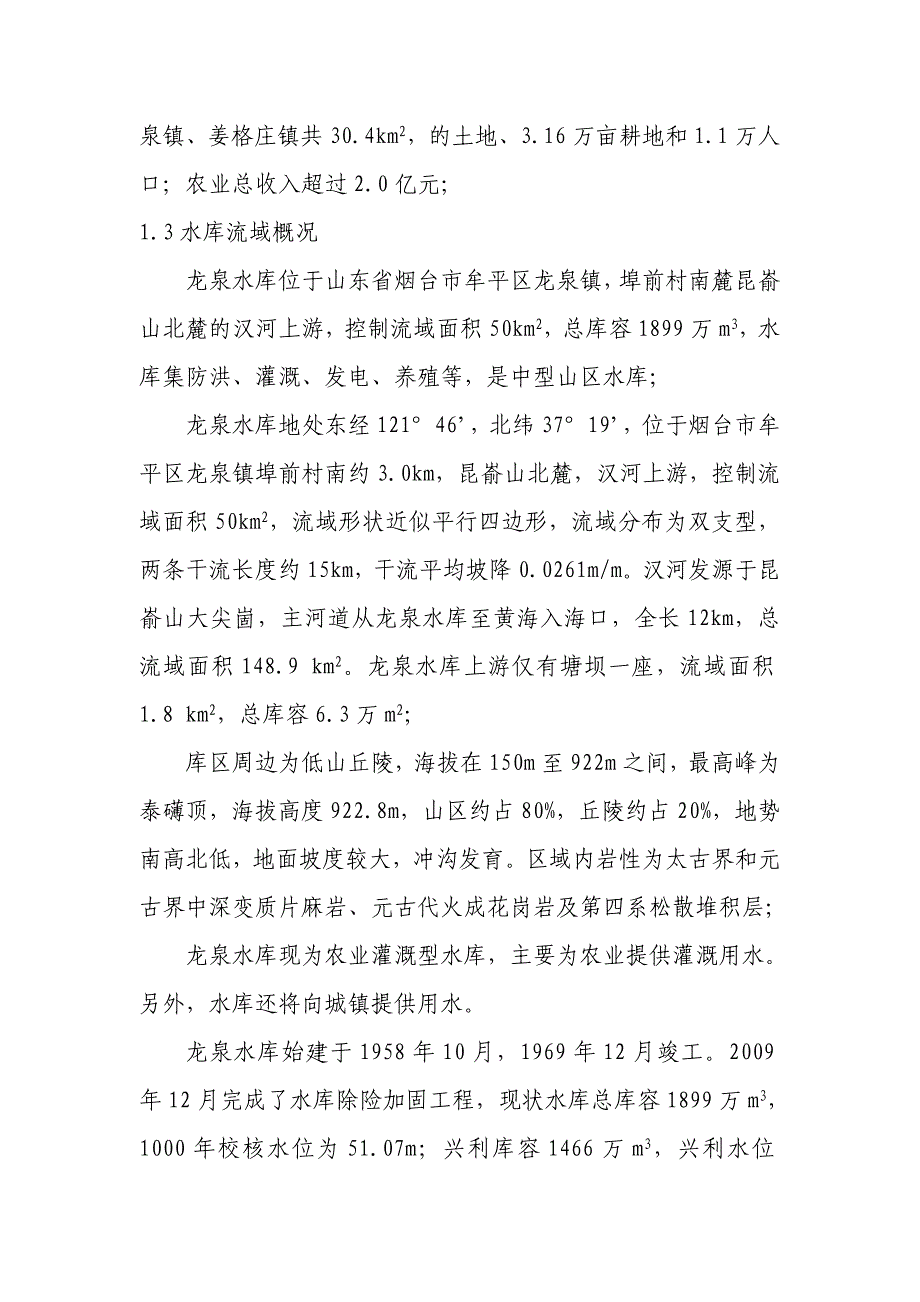 泉镇、姜格庄镇共 30.4km²，的土地、3.16 万亩耕地和 1.1 万人
口；农业总收入超过 2.0 亿元；
1.3 水库流域概况
龙泉水库位于山东省烟台市牟平区龙泉镇，埠前村南麓昆嵛
山北麓的汉河上游，控制流域面积 50km²，总库容 1899 万 m³，水
库集防洪、灌溉、发电、养殖等，是中型山区水库；
龙泉水库地处东经 121° 46’，北纬 37° 19’，位于烟台市牟
平区龙泉镇埠前村南约 3.0km，昆嵛山北麓，汉河上游，控制流
域面积 50km²，流域形状近似平行四边形，流域分布为双支型，
两条干流长度约 15km，干流平均坡降 0.0261m/m。汉河发源于昆
嵛山大尖崮，主河道从龙泉水库至黄海入海口，全长 12km，总
流域面积 148.9 km²。龙泉水库上游仅有塘坝一座，流域面积
1.8 km²，总库容 6.3 万 m²；
库区周边为低山丘陵，海拔在 150m 至 922m 之间，最高峰为
泰礴顶，海拔高度 922.8m，山区约占 80%，丘陵约占 20%，地势
南高北低，地面坡度较大，冲沟发育。区域内岩性为太古界和元
古界中深变质片麻岩、元古代火成花岗岩及第四系松散堆积层；
龙泉水库现为农业灌溉型水库，主要为农业提供灌溉用水。
另外，水库还将向城镇提供用水。
龙泉水库始建于 1958 年 10 月，1969 年 12 月竣工。2009
年 12 月完成了水库除险加固工程，现状水库总库容 1899 万 m³，
1000 年校核水位为 51.07m；兴利库容 1466 万 m³，兴利水位